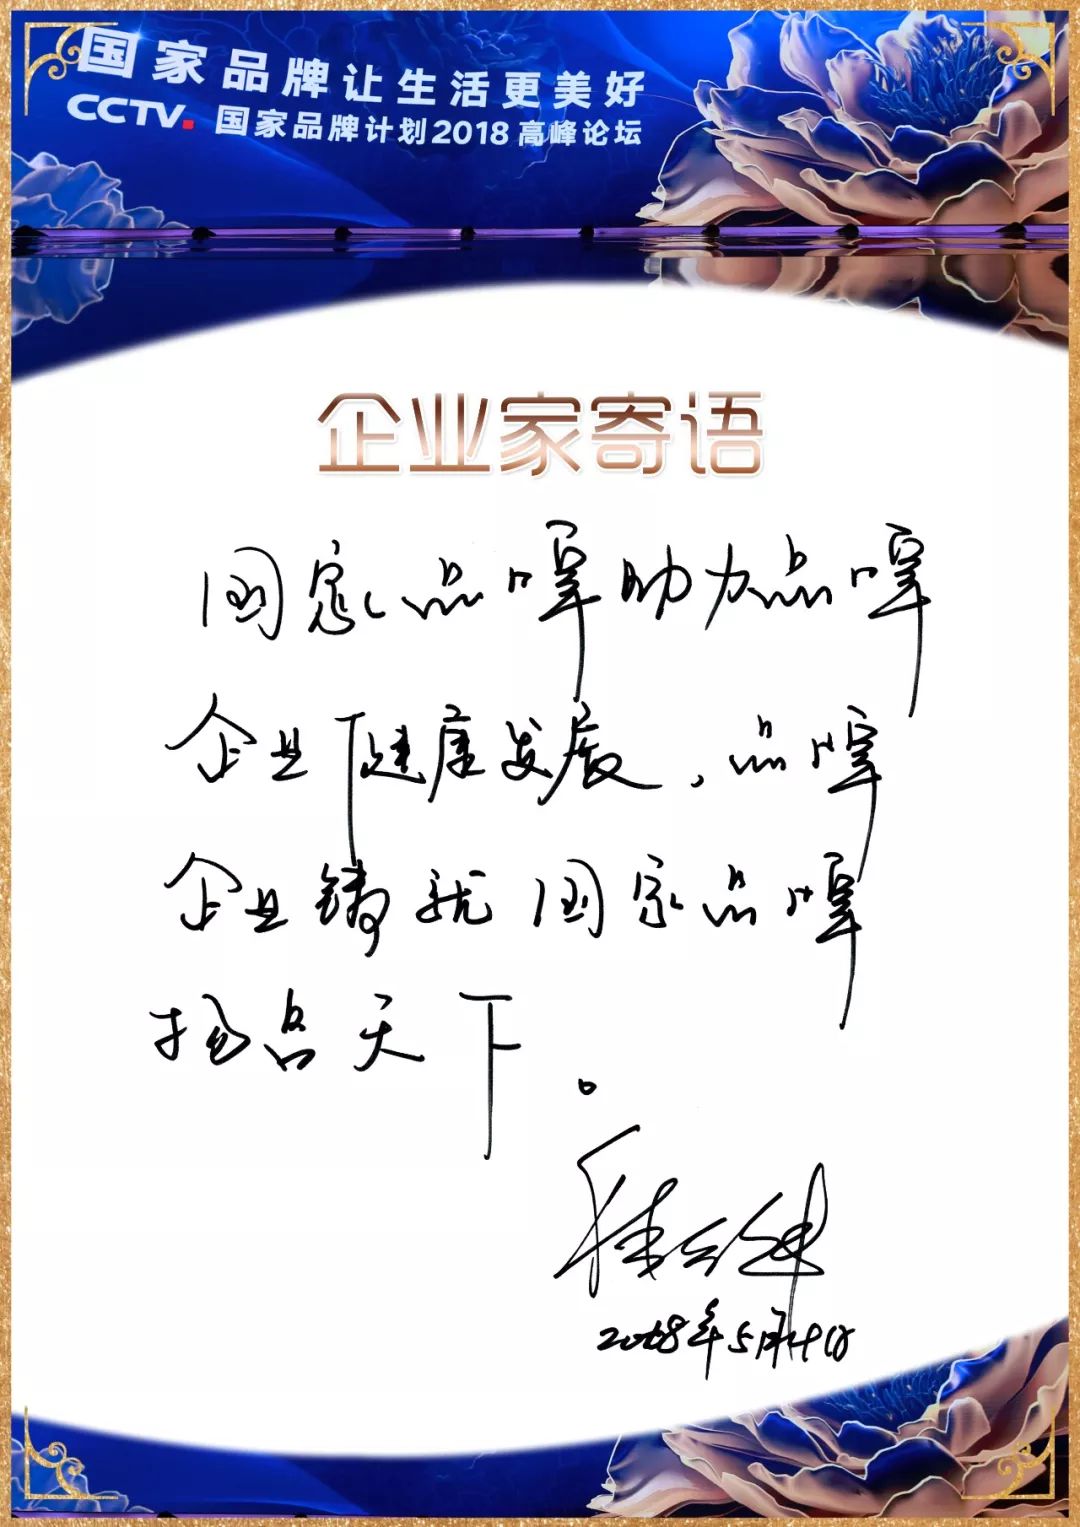 国家品牌让生活更美好
CCTV. 国家品牌计划2018高峰论坛
企业家寄语
国家品牌助力品牌
企业健康发展，品牌
企业铸就国家品牌
扬名天下。
2018年5月